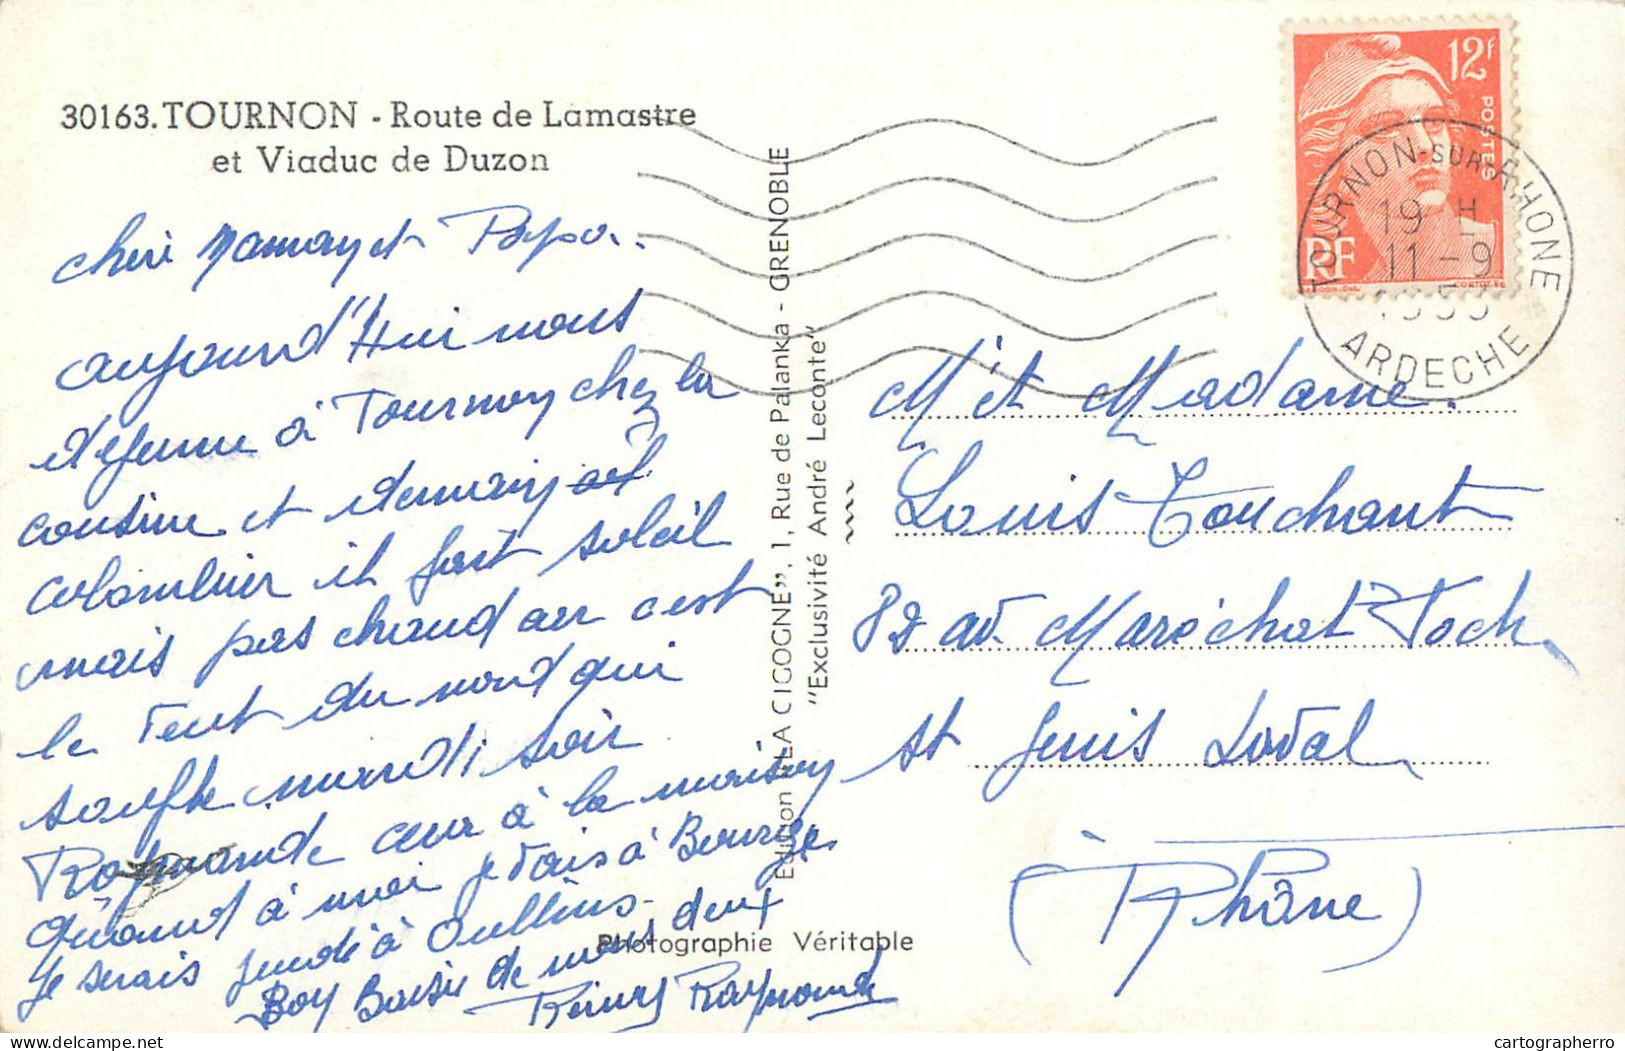 30163. TOURNON - Route de Lamastre
et Viaduc de Duzon
chère Maman et Papa.
aujourd'Hui nous
déjeune à Tournon chez la
cousine et demain
colombier il fait soleil
mais pas chaud car c'est
le vent du nord qui
soufle mardi soir
Raymonde cera à la maison
Quand à moi je vais à Bourge
je serais jeudi à Oullins
Bon Baisé de nous deux
Rémy Raymonde
Edition "LA CIGOGNE", 1, Rue de Palanka - GRENOBLE
"Exclusivité André Leconte"
Photographie Véritable
12f
POSTES
RF
TOURNON-SUR-RHONE
19 H
11 - 9
ARDECHE
Mr et Madame.
Louis Touchant
82 av. Maréchal Foch
St Genis Laval
(Rhône)
cartographerro